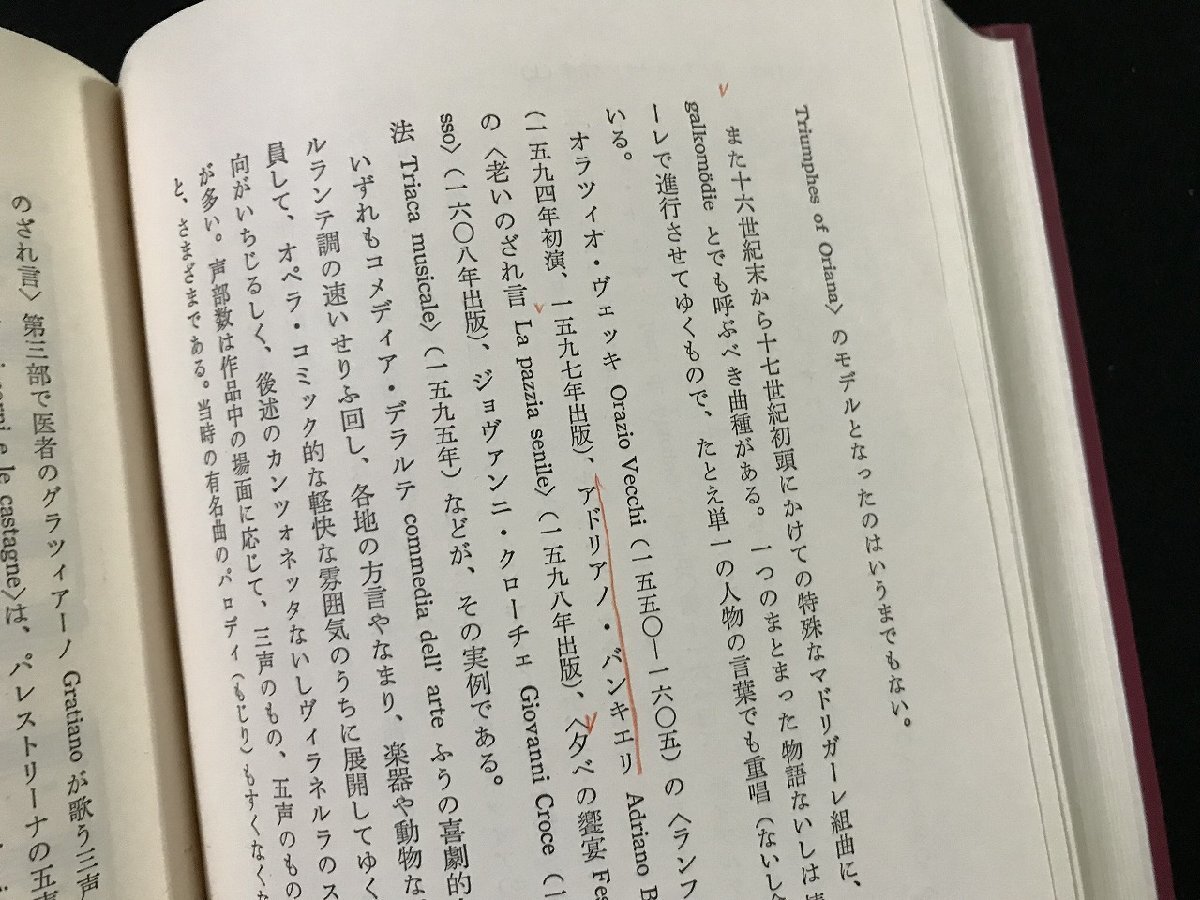 Triumphes of Oriana〉のモデルとなったのはいうまでもない。
また十六世紀末から十七世紀初頭にかけての特殊なマドリガーレ組曲に、
galkomödie とでも呼ぶべき曲種がある。一つのまとまった物語ないしは
ーレで進行させてゆくもので、たとえ単一の人物の言葉でも重唱(ないし
いる。
オラツィオ・ヴェッキ Orazio Vecchi(一五五〇―一六〇五)の〈ランフ
(一五九四年初演、一五九七年出版)、アドリアノ・バンキエリ Adriano B
の〈老いのざれ言 La pazzia senile〉(一五九八年出版)、〈夕べの饗宴 Fes
sso〉(一六〇八年出版)、ジョヴァンニ・クローチェ Giovanni Croce(一
法 Triaca musicale〉(一五九五年)などが、その実例である。
いずれもコメディア・デラルテ commedia dell' arte ふうの喜劇的
ルランテ調の速いせりふ回し、各地の方言やなまり、楽器や動物な
員して、オペラ・コミック的な軽快な雰囲気のうちに展開してゆく
向がいちじるしく、後述のカンツォネッタないしヴィラネルラのス
が多い。声部数は作品中の場面に応じて、三声のもの、五声のもの
と、さまざまである。当時の有名曲のパロディ(もじり)もすくなくな
のざれ言〉第三部で医者のグラツィアーノ Gratiano が歌う三声
e le castagne〉は、パレストリーナの五声